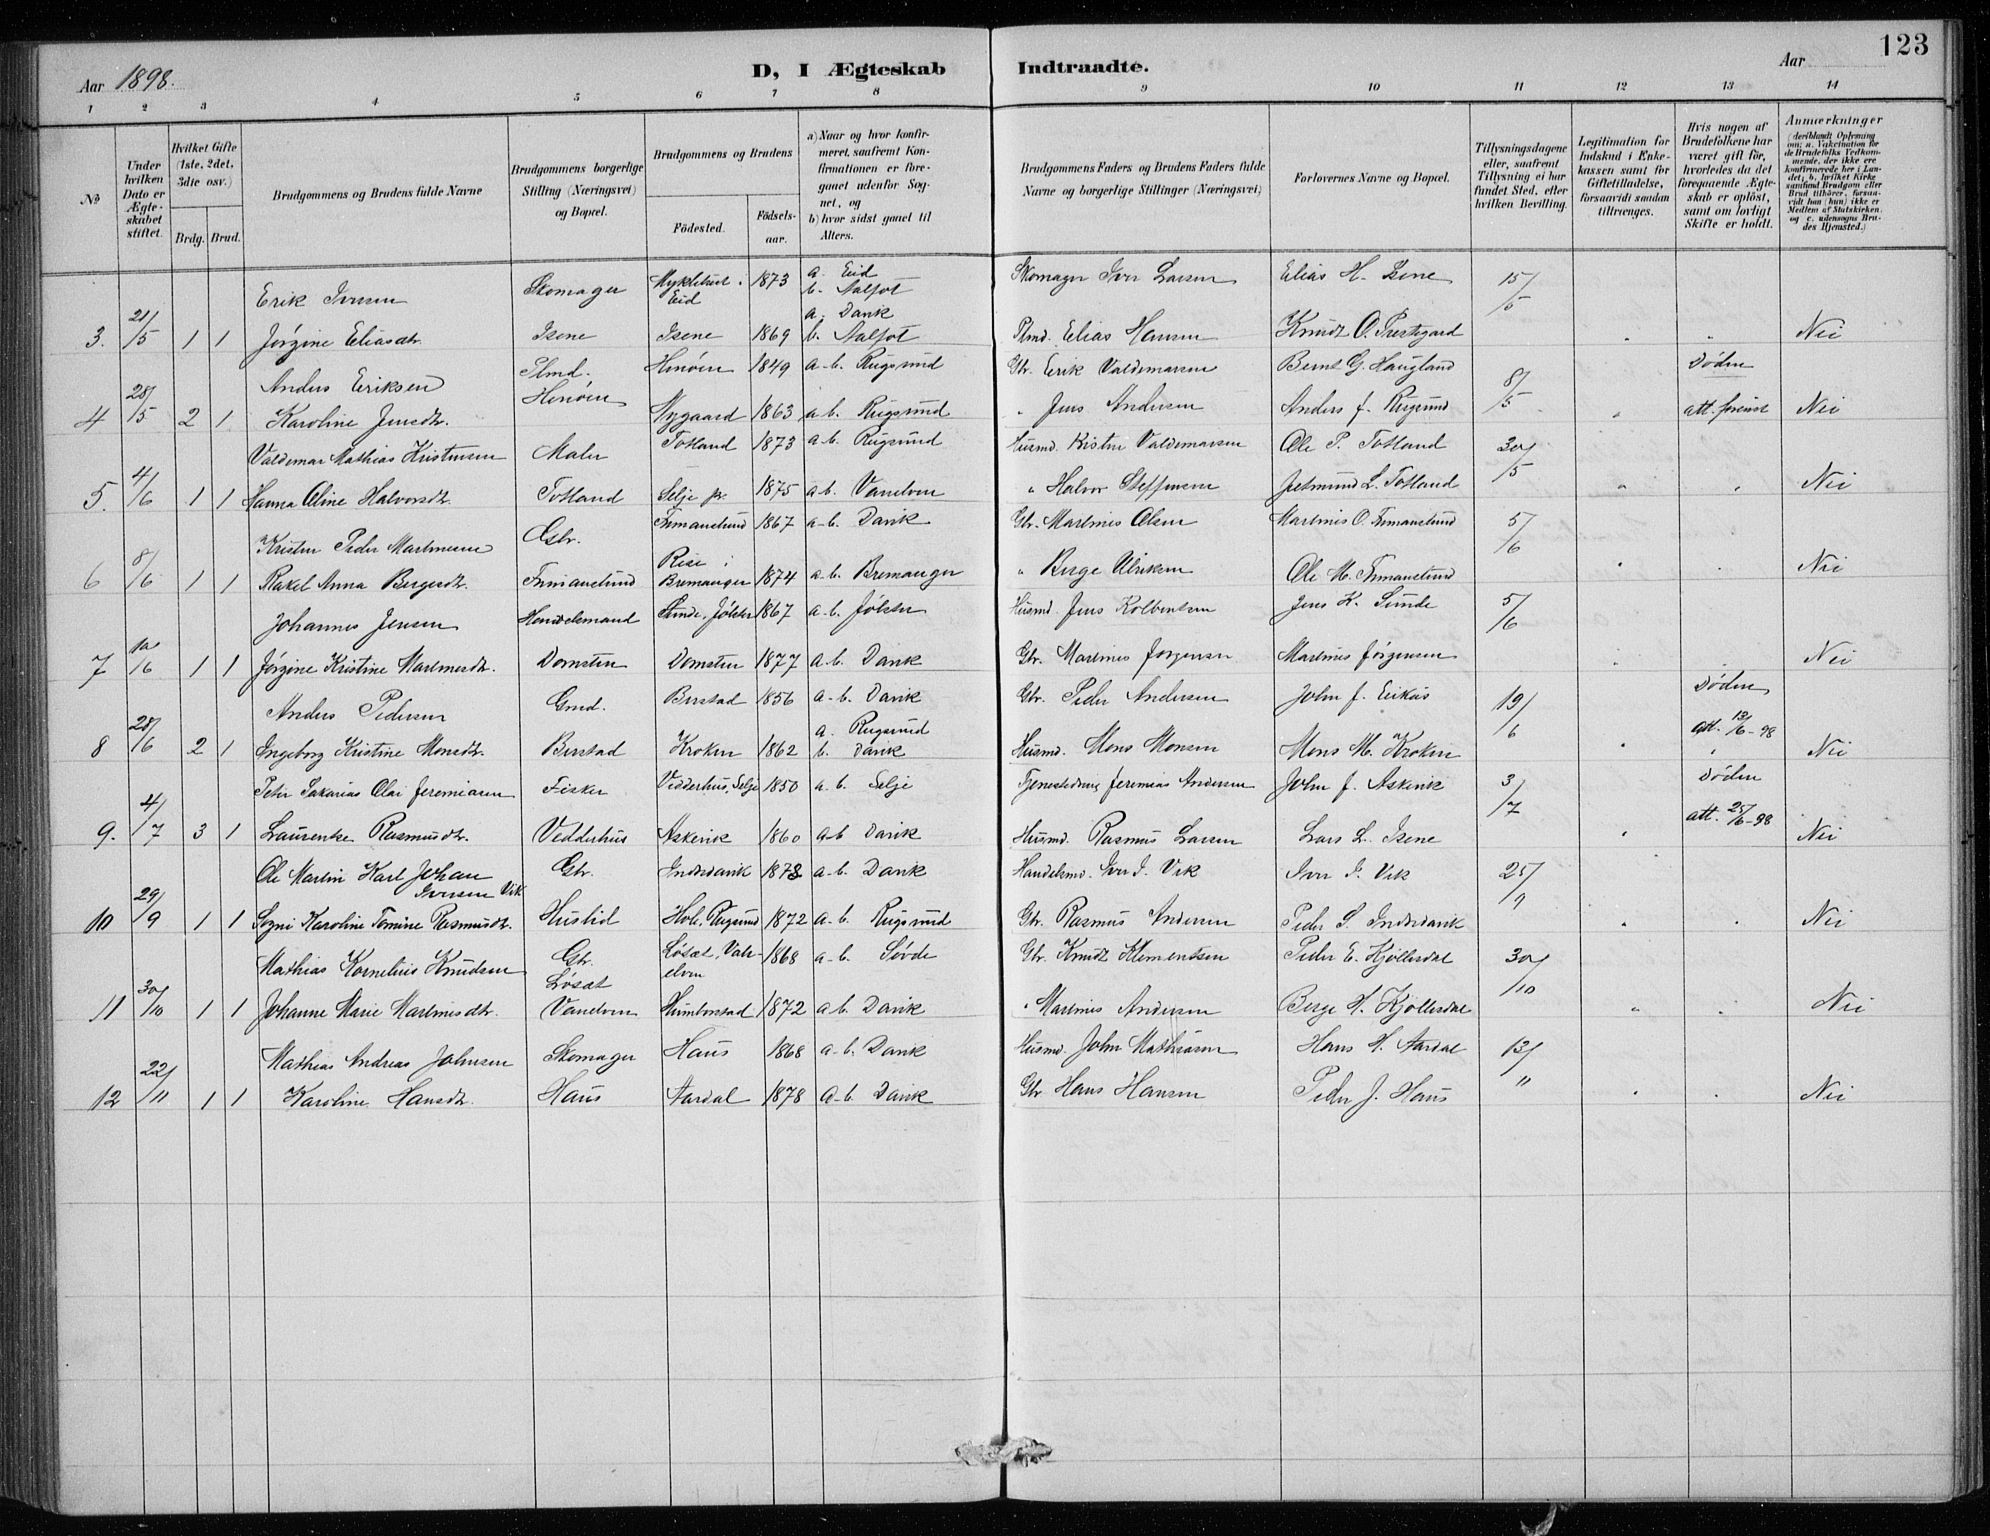 123
Aar 1898.
D, I Ægteskab Indtraadte.
Aar
1 2 3 4 5 6 7 8 9 10 11 12 13 14
No
Under hvilken Dato er Ægteskabet stiftet.
Hvilket Gifte (1ste, 2det, 3die osv.)
Brdg. Brud.
Brudgommens og Brudens fulde Navne
Brudgommens borgerlige Stilling (Næringsvei) og Bopæl.
Brudgommens og Brudens
Födested.
Födsels-aar.
a) Naar og hvor konfirmeret, saafremt Konfirmationen er foregaaet udenfor Sognet, og
b) hvor sidst gaaet til Alters.
Brudgommens Faders og Brudens Faders fulde Navne og borgerlige Stillinger (Næringsvei)
Forlovernes Navne og Bopæl.
Tillysningsdagene eller, saafremt Tillysning ei har fundet Sted, efter hvilken Bevilling.
Legitimation for Indskud i Enkekassen samt for Giftetilladelse, forsaavidt saadan tiltrænges.
Hvis nogen af Brudefolkene har været gift før, hvorledes da det foregaaende Ægteskab er opløst, samt om lovligt Skifte er holdt.
Anmærkninger
Erik Iversen Skomager Myklebust i Eid 1873 a. Eid b. Aalfot Skomager Iver Larsen Elias H. Isene 15/5
3. 21/5 1 1 Jørgine Eliasdtr. Isene Isene 1869 a. Davik b. Aalfot Elias Hansen Knudt O. Prestegard Nei
Anders Eriksen Henøen 1849 a-b. Rugsund Gbr. Erik Valdemarsen Bernt G. Haugland 8/5 Døden
4 28/5 2 1 Karoline Jensdtr. Henøen Nygaard 1863 a b. Rugsund " Jens Andersen Anders J. Rugsund att. forevist Nei
Valdemar Mathias Kristensen Maler Totland 1873 a-b. Rugsund Husmd. Kristen Valdemarsen Ole P. Totland 30/5
5. 4/6 1 1 Hanna Oline Halvorsdtr. Totland Selje 1875 a b. Vanelven " Halvor Steffensen L. Totland Nei
Kristen Peder Martinesen Gbr. 1867 a-b. Davik Gbr. Martines Olsen Martines O. 5/6
6 8/6 1 1 Rakel Anna Bergesdtr. Rise i Bremanger 1874 a-b. Bremanger " Berge Ulriksen Ole M. Nei
Johannes Jensen Handelsmand Sunde, Jølster 1867 a-b. Jølster Husmd. Jens Kolbentsen Jens K. Sunde 5/6
7 10/6 1 1 Jørgine Kristine Martinesdtr. Domsten Domsten 1877 a-b. Davik Gbr. Martines Jørgensen Martines Jørgensen Nei
Anders Pedersen Gmd. Berstad 1856 a-b. Davik Gbr. Peder Andersen John J. Eikås 19/6 Døden
8 28/6 2 1 Ingeborg Kristine Monsdtr. Berstad Kroken 1862 a. Rugsund b. Davik Husmd. Mons Monsen Mons M. Kroken att. 13/6-98 Nei
Peter Sakarias Olai Jeremiasen Fisker Vedderhus, Selje 1850 a-b. Selje Jeremias Andersen John J. Askevik 3/7 Døden
9. 4/7 3 1 Laurentse Rasmusdtr. Vedderhus Askevik 1860 a-b Davik Husmd. Rasmus Larsen Lars L. Isene att. 25/6-98 Nei
Ole Martin Karl Johan Iversen Vik Gbr. Indredavik 1873 a-b. Davik Handelsmd. Iver I. Vik Iver I. Vik 25/9
10 29/9 1 1 Sogni Karoline Tomine Rasmusdtr. Hustid Hole, Rugsund 1872 a-b. Rugsund Gbr. Rasmus Andersen Peder S. Indredavik Nei
Mathias Kornelius Knudsen Gbr. Løsæt Løsæt, Vanelven 1868 a-b. Søvde Gbr. Knudt Klementsen Peder E. Kjøllesdal 30/10
11 30/10 1 1 Johanne Marie Martinesdtr. Vanelven Humberstad 1872 a b. Davik " Martines Andersen Berge H. Kjøllesdal Nei
Mathias Andreas Johnsen Skomager Haus 1868 a-b. Davik Husmd. John Mathiasen Hans H. Aardal 13/11
12 22/11 1 1 Karoline Hansdtr. Haus Aardal 1878 a-b. Davik Gbr Hans Hansen Peder J. Haus Nei